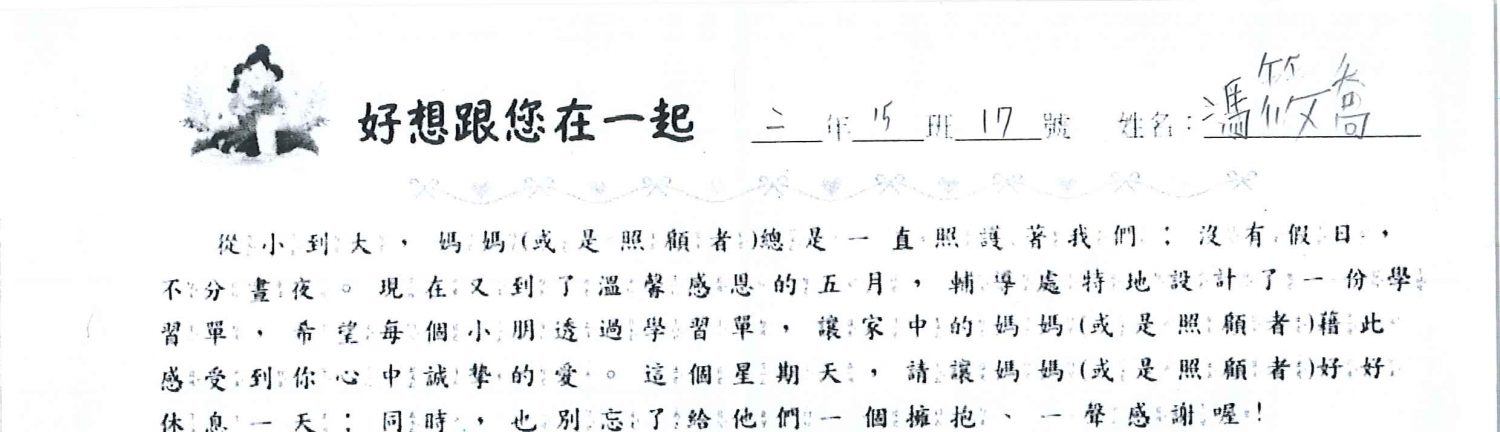 好想跟您在一起 二年15班17號 姓名：馮筱喬
從小到大，媽媽(或是照顧者)總是一直照護著我們；沒有假日，
不分晝夜。現在又到了溫馨感恩的五月，輔導處特地設計了一份學
習單，希望每個小朋透過學習單，讓家中的媽媽(或是照顧者)藉此
感受到你心中誠摯的愛。這個星期天，請讓媽媽(或是照顧者)好好
休息一天；同時，也別忘了給他們一個擁抱、一聲感謝喔！